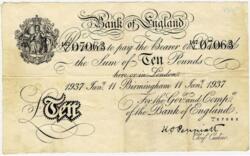 Bank of England
No. 07063 to pay the Bearer on No. 07063
the Sum of Ten Pounds
here or in London
1937 Jany. 11 Birmingham 11 Jany. 1937
For the Govr. and Compa.
of the BANK of ENGLAND
Ten
Chief Cashier